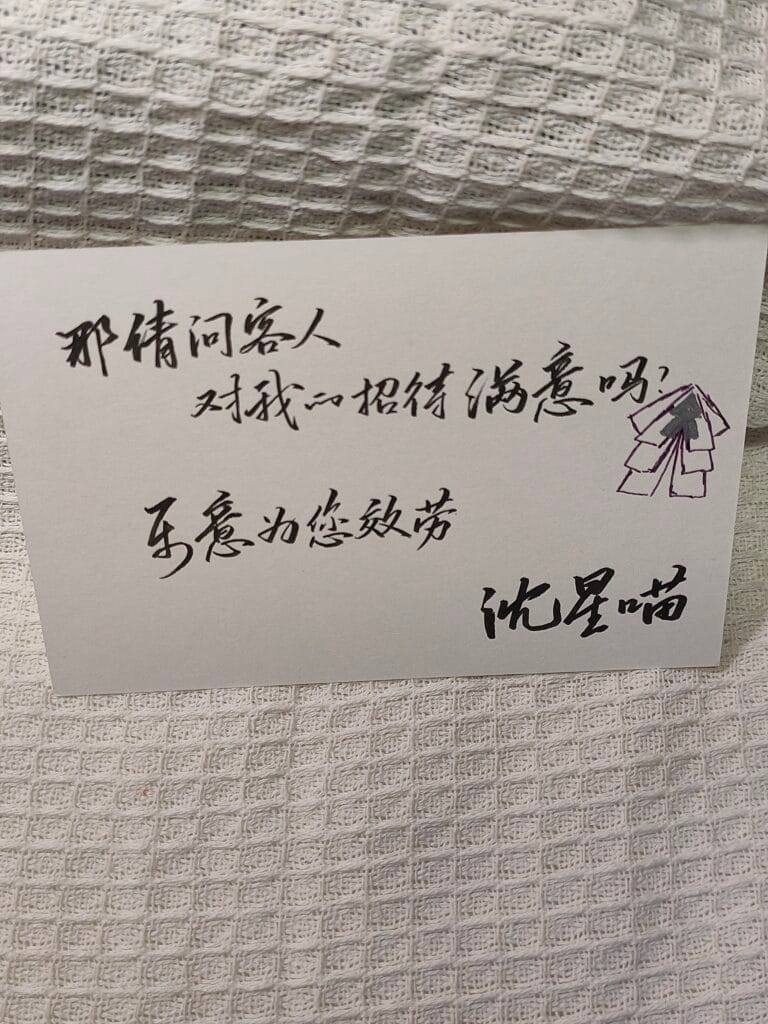 那请问客人
对我的招待满意吗?
乐意为您效劳
沈星喵